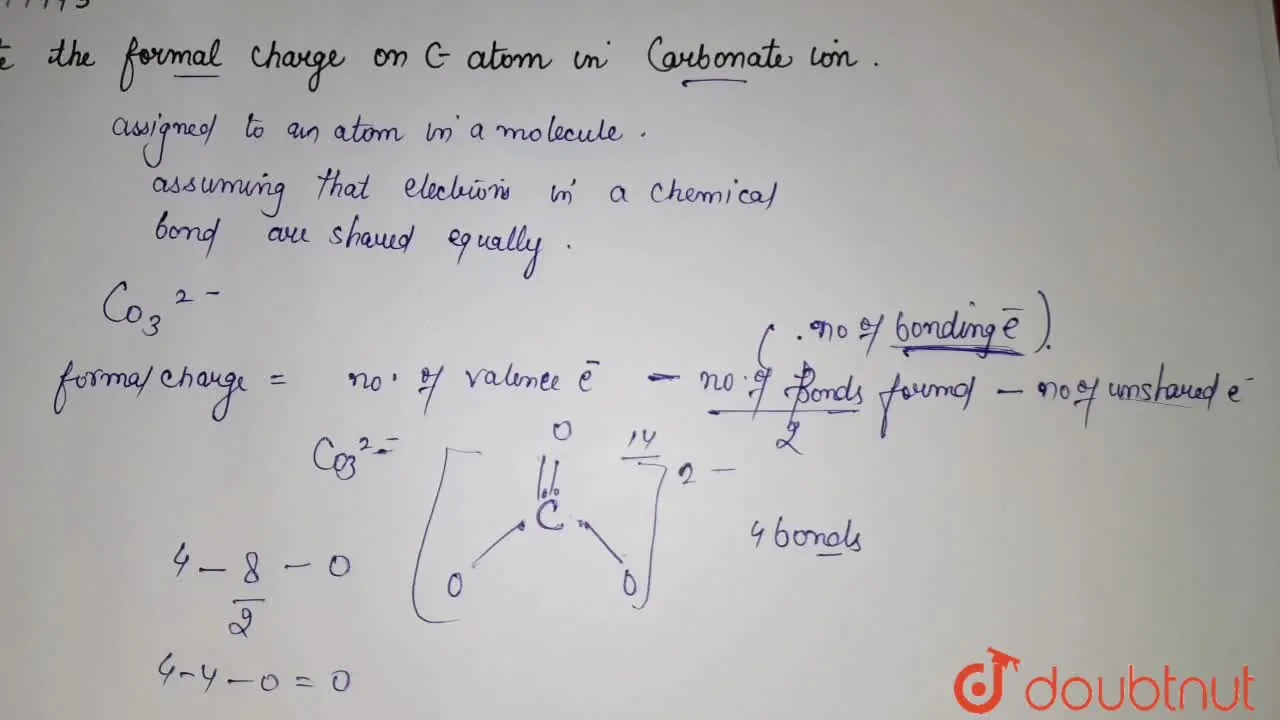 the formal charge on C atom in Carbonate ion.
assigned to an atom in a molecule.
assuming that electrons in a chemical
bond are shared equally.
Co3 2-
(. no of bonding e̅).
formal charge = no. of valence e̅ - no. of Bonds formed - no of unshared e-
2
Co3 2-
O
14
2-
C
4 bonds
O O
4 - 8 - 0
2
4-4-0=0
doubtnut